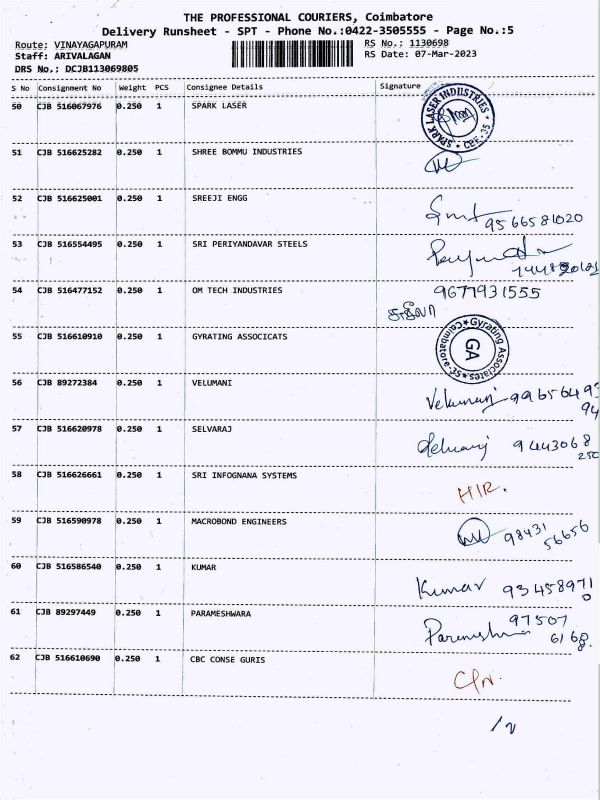 THE PROFESSIONAL COURIERS, Coimbatore
Delivery Runsheet - SPT - Phone No.:0422-3505555 - Page No.:5
Route: VINAYAGAPURAM
RS No.: 1130698
Staff: ARIVALAGAN
RS Date: 07-Mar-2023
DRS No.: DCJB113069805
S No Consignment No Weight PCS Consignee Details Signature
50 CJB 516067976 0.250 1 SPARK LASER
SPARK LASER INDUSTRIES * CBE-35 *
51 CJB 516625282 0.250 1 SHREE BOMMU INDUSTRIES
52 CJB 516625001 0.250 1 SREEJI ENGG
9566581020
53 CJB 516554495 0.250 1 SRI PERIYANDAVAR STEELS
54 CJB 516477152 0.250 1 OM TECH INDUSTRIES 9677931555
55 CJB 516610910 0.250 1 GYRATING ASSOCICATS
Gyrating Associates * Coimbatore-35 *
GA
56 CJB 89272384 0.250 1 VELUMANI
Velumani 99656493
94
57 CJB 516620978 0.250 1 SELVARAJ
Selvaraj 9443068
250
58 CJB 516626661 0.250 1 SRI INFOGNANA SYSTEMS
H/R.
59 CJB 516590978 0.250 1 MACROBOND ENGINEERS
98431
56656
60 CJB 516586540 0.250 1 KUMAR
Kumar 93458971
0
61 CJB 89297449 0.250 1 PARAMESHWARA
97507
6168
8.
62 CJB 516610690 0.250 1 CBC CONSE GURIS